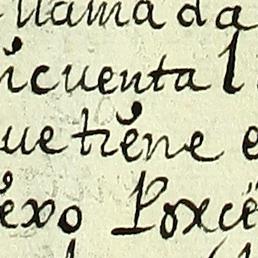 llama da
icuenta l
ue tiene e
exo Porce